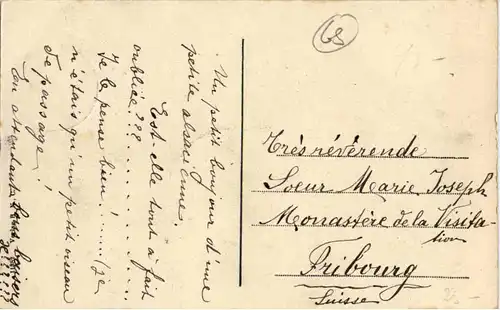 Un petit bonjour d'une
petite alsacienne.
Est-elle tout à fait
oubliée???.........
Je le pense bien!......(je
n'étais qu'un petit oiseau
de passage!
En attendant bons baisers
Très révérende
Soeur Marie Joseph
Monastère de la Visita-
tion
Fribourg
Suisse
68